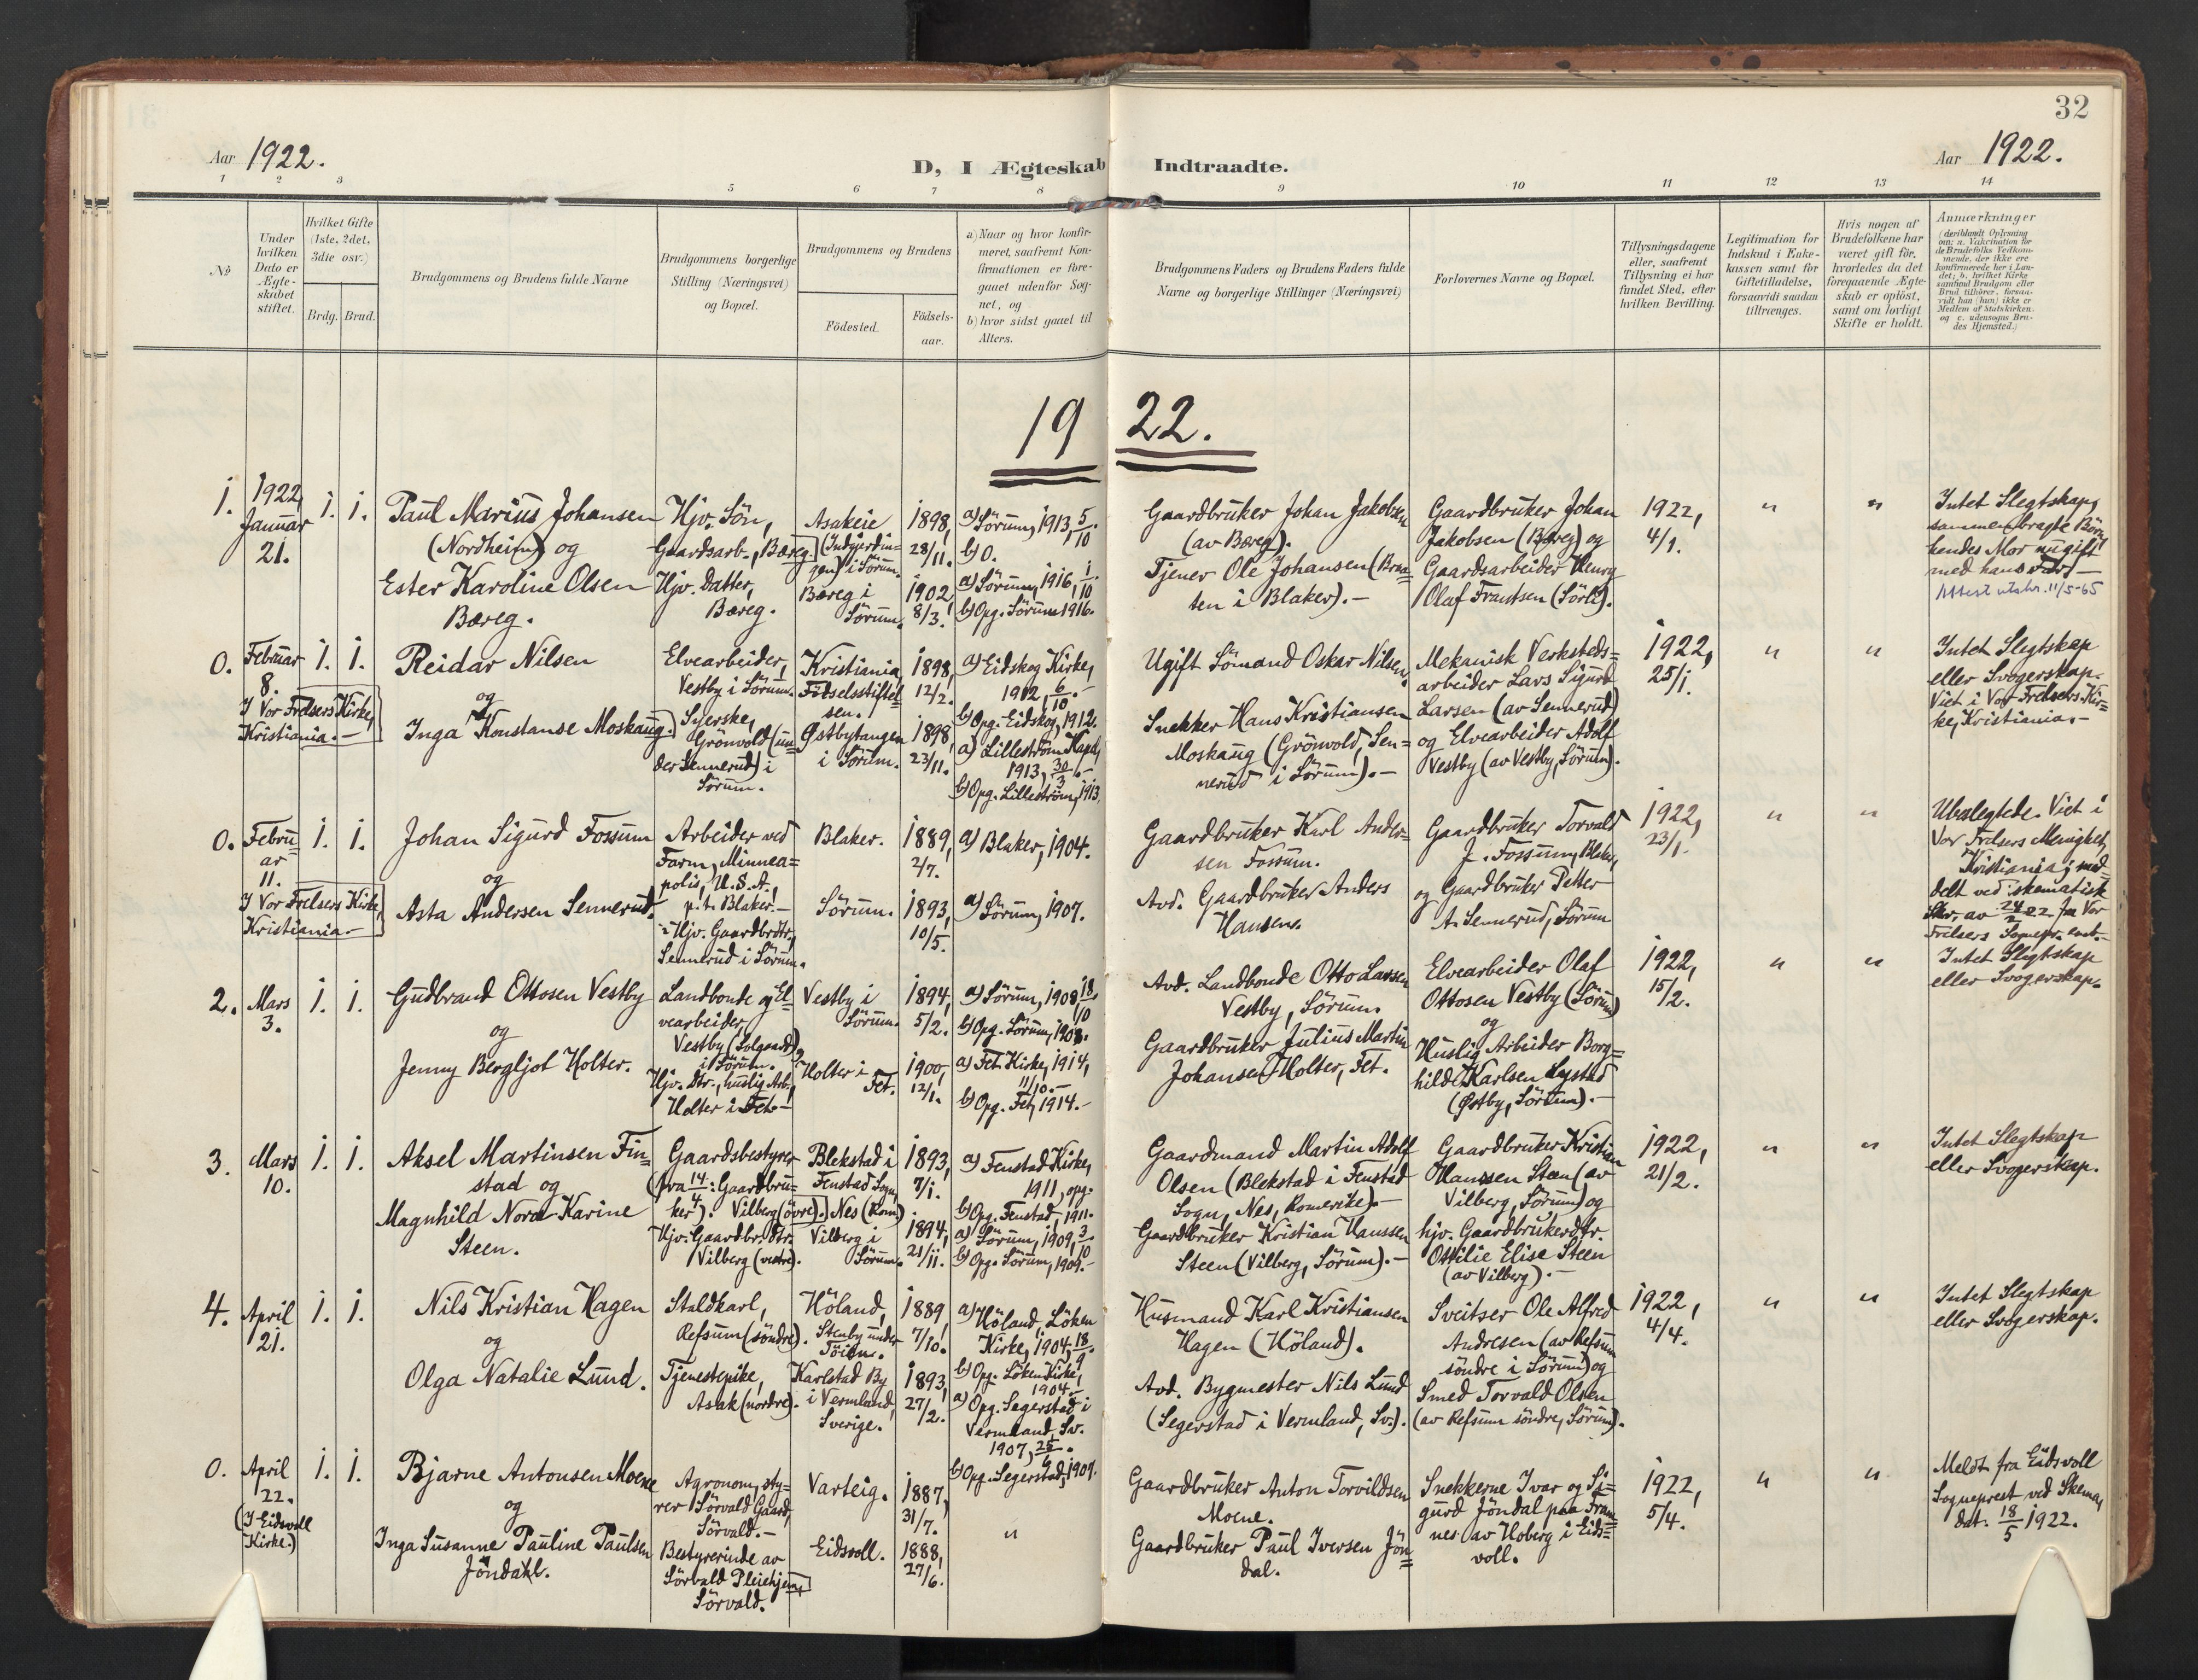 32
Aar 1922.
D, I Ægteskab Indtraadte.
Aar 1922.
1 2 3 5 6 7 8 9 10 11 12 13 14
No
Under hvilken Dato er Ægte-skabet stiftet.
Hvilket Gifte (1ste, 2det, 3die osv.)
Brdg. Brud.
Brudgommens og Brudens fulde Navne
Brudgommens borgerlige Stilling (Næringsvei) og Bopæl.
Brudgommens og Brudens
Födested.
Födsels-aar.
a) Naar og hvor konfir-meret, saafremt Kon-firmationen er fore-gaaet udenfor Sog-net, og
b) hvor sidst gaaet til Alters.
Brudgommens Faders og Brudens Faders fulde Navne og borgerlige Stillinger (Næringsvei)
Forlovernes Navne og Bopæl.
Tillysningsdagene eller, saafremt Tillysning ei har fundet Sted, efter hvilken Bevilling.
Legitimation for Indskud i Enke-kassen samt for Giftetilladelse, forsaavidt saadan tiltrænges.
Hvis nogen af Brudefolkene har været gift för, hvorledes da det foregaaende Ægte-skab er oplöst, samt om lovligt Skifte er holdt.
Anmærkninger
(deriblandt Oplysning om: a. Vakcination for de Brudefolks Vedkom-mende, der ikke ere konfirmerede her i Lan-det; b. hvilket Kirke-samfund Brudgom eller Brud tilhører, forsaa-vidt han (hun) ikke er Medlem af Statskirken, og c. udensogns Bru-des Hjemsted.)
19 22.
1.
1922,
Januar
21.
1. 1.
Paul Marius Johansen
(Nordheim) og
Ester Karoline Olsen
Bæreg.
Hjv. Sön,
Gaardsarb., Bæreg.
Hjv. Datter,
Bæreg.
Asakeie
(Indgjerdin-
gen) i Sörum.
Bæreg i
Sörum.
1898,
28/11.
1902,
8/3.
a) Sörum, 1913, 5/10.
b) O.
a) Sörum, 1916, 1/10
b) Opg. Sörum 1916.
Gaardbruker Johan Jakobsen
(av Bæreg).
Tjener Ole Johansen (Braa-
ten i Blaker). —
Gaardbruker Johan
Jakobsen (Bæreg) og
Gaardsarbeider Henry
Olaf Frantsen (Sörli).
1922,
4/1.
" "
Intet Slegtskap,
sammenbragte Börn,
hendes Mor nu gift
med hans Far, —
Attest utskr. 11/5-65
0.
Februar
8.
I Vor Frelsers Kirke,
Kristiania. —
1. 1.
Reidar Nilsen
og
Inga Konstanse Moskaug.
Elvearbeider,
Vestby i Sörum.
Syerske,
Grönvold (un-
der Sennerud) i
Sörum.
Kristiania,
Födselsstiftel-
sen.
Östbytangen
i Sörum.
1898,
12/2.
1898,
23/11.
a) Eidskog Kirke,
1912, 6/10. —
b) Opg. Eidskog, 1912.
a) Lilleström Kapel,
1913, 30/3. —
b) Opg. Lilleström, 1913.
Ugift Sömand Oskar Nilsen.
Snekker Hans Kristiansen
Moskaug (Grönvold, Sen-
nerud i Sörum). —
Mekanisk Verksteds-
arbeider Lars Sigurd
Larsen (av Sennerud)
og Elvearbeider Adolf
Vestby (av Vestby, Sörum).
1922,
25/1.
" "
Intet Slegtskap
eller Svogerskap.
Viet i Vor Frelsers Kir-
ke, Kristiania. —
0.
Febru-
ar
11.
I Vor Frelsers Kirke,
Kristiania —
1. 1.
Johan Sigurd Fossum
og
Asta Andersen Sennerud.
Arbeider ved
Farm, Minnea-
polis, U.S.A.,
p.t. Blaker. —
Hjv. Gaardbrdtr.,
Sennerud i Sörum.
Blaker.
Sörum.
1889,
2/7.
1893,
10/5.
a) Blaker, 1904.
a) Sörum, 1907.
Gaardbruker Karl Ander-
sen Fossum.
Avd. Gaardbruker Anders
Hansen.
Gaardbruker Torvald
J. Fossum, Blaker,
og Gaardbruker Petter
A. Sennerud, Sörum
1922,
23/1.
" "
Ubeslegtede. Viet i
Vor Frelsers Menighet,
Kristiania; med-
delt ved skematisk
Skr. av 24/2 22 fra Vor
Frelsers Sognepr. emb. —
2.
Mars
3.
1. 1.
Gudbrand Ottosen Vestby
og
Jenny Bergljot Holter.
Landbonde og El-
vearbeider,
Vestby (Solgaard)
i Sörum.
Hjv. Dtr., huslig Arb.,
Holter i Fet. —
Vestby i
Sörum.
Holter i
Fet.
1894,
5/2.
1900,
12/1.
a) Sörum, 1908, 18/10
b) Opg. Sörum, 1908.
a) Fet Kirke, 1914,
11/10. —
b) Opg. Fet, 1914. —
Avd. Landbonde Otto Larsen
Vestby, Sörum.
Gaardbruker Julius Martin
Johansen Holter, Fet.
Elvearbeider Olaf
Ottosen Vestby (Sörum)
og
Huslig Arbeider Borg-
hild Karlsen Lystad
(Østby, Sörum). —
1922,
15/2.
" "
Intet Slegtskap
eller Svogerskap.
3.
Mars
10.
1. 1.
Aksel Martinsen Fin-
stad og
Magnhild Nora Karine
Steen.
Gaardsbestyrer
(fra 14/4: Gaardbru-
ker). Vilberg (övre).
Hjv. Gaardbr. Dtr.
Vilberg (vestre).
Blekstad i
Fenstad Sogn,
Nes (Rom.)
Vilberg i
Sörum.
1893,
7/1.
1894,
21/11.
a) Fenstad Kirke,
1911, opg.
b) Opg. Fenstad, 1911.
a) Sörum, 1909, 3/10
b) Opg. Sörum, 1909. —
Gaardmand Martin Adolf
Olsen (Blekstad i Fenstad
Sogn, Nes, Romerike). —
Gaardbruker Kristian Hanssen
Steen (Vilberg, Sörum). —
Gaardbruker Kristian
Hanssen Steen (av
Vilberg, Sörum) og
hjv. Gaardbrukerdtr.
Ottilie Elise Steen
(av Vilberg). —
1922,
21/2.
" "
Intet Slegtskap
eller Svogerskap.
4.
April
21.
1. 1.
Nils Kristian Hagen
og
Olga Natalie Lund.
Staldkarl,
Refsum (söndre).
Tjenestepike,
Asak (nordre).
Höland,
Stenby under
Töien.
Karlstad By
i Vermland,
Sverige.
1889,
7/10.
1893,
27/2.
a) Höland, Löken
Kirke, 1904, 18/9.
b) Opg. Löken Kirke,
1904. —
a) Opg. Segerstad i
Vermland, Sv.
1907, 25/6.
b) Opg. Segerstad, 1907.
Husmand Karl Kristiansen
Hagen (Höland).
Avd. Bygmester Nils Lund
(Segerstad i Vermland, Sv.).
Sveitser Ole Alfred
Andresen (av Refsum
söndre i Sörum) og
Smed Torvald Olsen
(av Refsum söndre, Sörum).
1922,
4/4.
" "
Intet Slegtskap
eller Svogerskap.
0.
April
22.
(I Eidsvoll
Kirke.)
1. 1.
Bjarne Antonsen Moene
og
Inga Susanne Pauline Paulsen
Jöndahl.
Agronom, sty-
rer Sörvald Gaard,
Sörvald. —
Bestyrerinde av
Sörvald Pleiehjem,
Sörvald.
Varteig.
Eidsvoll.
1887,
31/7.
1888,
27/6.
"
Gaardbruker Anton Torvildsen
Moene.
Gaardbruker Paul Iversen Jön-
dal.
Snekkerne Ivar og Si-
gurd Jöndal paa Fram-
nes av Hoberg i Eids-
voll.
1922,
5/4.
" "
Meldt fra Eidsvoll
Sogneprest ved Skema,
dat. 18/5 1922.